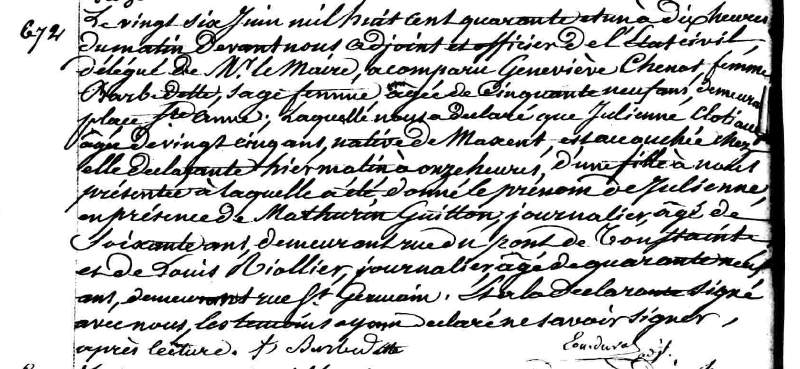 672
Le vingt six Juin mil huit cent quarante et un à dix heures
du matin Devant nous adjoint et officier de l'Etat civil
délégué de Mr. le Maire, a comparu Geneviève Chenot, femme
Barbedette, sage femme âgée de Cinquante neuf ans, demeurant
place Ste Anne; Laquelle nous a déclaré que Julienne Clotiaux
âgée de vingt cinq ans, native de Maxent, est accouchée chez
elle déclarante hier matin à onze heures, d'une fille à nous
présentée à laquelle a été donné le prénom de Julienne,
en présence de Mathurin Guitton, journalier, âgé de
soixante ans, demeurant rue du pont de Toussainte
et de Louis Riollier, journalier âgé de quarante neuf
ans, demeurant rue St. Germain. Et la Déclarante signé
avec nous, les témoins ayant déclaré ne savoir signer,
après lecture. f Barbedette
adjt.